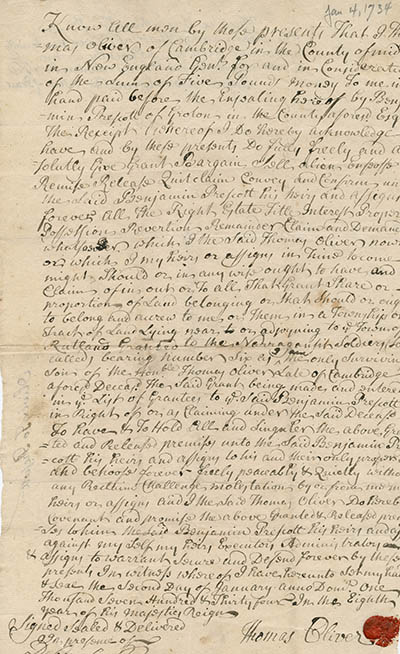 Jan 4, 1734
Know all men by these presents That I Tho
mas Oliver of Cambridge in the County of mid
in New England for and in Consideratio
of the Sum of Five Pounds money To me in
hand paid before the Ensealing hereof by Ben
min Prescott of Groton in the County aforesd Esq
The Receipt whereof I Do hereby acknowledge
have and by these presents Do fully freely and a
solutly Give Grant Bargain Sell alien enfeoffe
Remise Release Quitclaim Convey and Confirm un
the said Benjamin Prescott his heirs and assigns
forever All the Right Estate Title Interest Proper
Possession Revertion Remainder Claim and Demand
whatsoever which I the said Thomas Oliver now
or which I my heirs or assigns in time to come
might Should or in any wise ought to have and
Claim of in out or To all That Grant Share or
proportion of Land belonging or that should or oug
to belong and accrew to me or them in a Township or
Tract of Land Lying near to or adjoyning to ye Town of
Rutland Granted to the Narragansett Soldiers so
called bearing number Six as I am the only Surviving
son of the Honble Thomas Oliver Late of Cambridge
aforesd Deceasd The said Grant being made and entered
in ye List of Grantees to ye said Benjamin Prescott
in Right of or as Claiming under the said Deceased
To have & To Hold All and Singuler the above Gran
ted and Released premises unto the said Benjamin Pr
cott his heirs and assigns to his and their only proper
and behoofe forever freely peaceably & Quietly witho
any Reclaim Challenge molestation by or from me m
heirs or assigns and I the said Thomas Oliver Do hereb
Covenant and promise the above Granted & Released pre
ses to him the said Benjamin Prescott his heirs and
against my self my heirs Executors Administrators
& assigns to warrant Secure and Defend forever by these
presents In witness whereof I have hereunto set my hand
& seal the Second Day of January anno Domi. One
Thousand Seven Hundred & Thirty four In the Eighth
year of his majestys Reign
Signed Sealed & Delivered
In presence of
Thomas Oliver